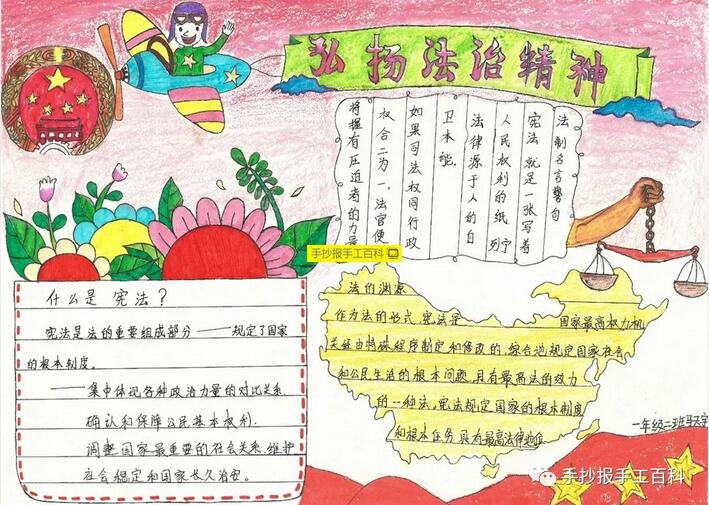 弘扬法治精神
法制名言警句
宪法就是一张写着
人民权利的纸 列宁
法律源于人的自
卫本能.
如果司法权同行政
权合二为一,法官便
将握有压迫者的力量
手抄报手工百科
什么是宪法?
宪法是法的重要组成部分——规定了国家
的根本制度。
——集中体现各种政治力量的对比关系.
确认和保障公民基本权利.
调整国家最重要的社会关系.维护
社会稳定和国家长久治安。
法的渊源
作为法的形式,宪法是 国家最高权力机
关经由特殊程序制定和修改的,综合地规定国家社会
和公民生活的根本问题,具有最高法的效力
的一种法。宪法规定国家的根本制度
和根本任务,具有最高法律地位
一年级二班马天宇
手抄报手工百科